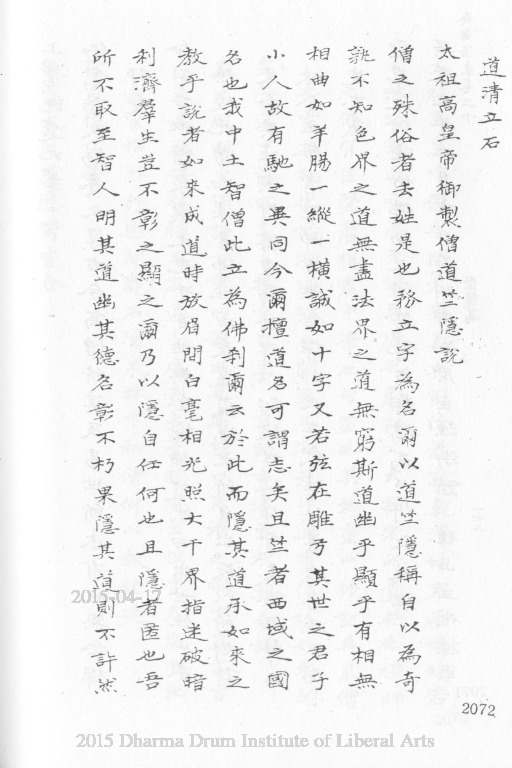 道清立石
太祖高皇帝御製僧道竺隱說
僧之殊俗者去姓是也務立字為名爾以道竺隱稱自以為奇
孰不知色界之道無盡法界之道無窮斯道幽乎顯乎有相無
相曲如羊腸一縱一橫誠如十字又若弦在雕弓其世之君子
小人故有馳之異同今爾擅道名可謂志矣且竺者西域之國
名也我中土智僧此立為佛剎爾云於此而隱其道承如來之
教乎說者如來成道時放眉間白毫相光照大千界指迷破暗
利濟羣生豈不彰之顯之爾乃以隱自任何也且隱者匿也吾
所不取至智人明其道幽其德名彰不朽果隱其道則不許然
2015-04-17
2072
2015 Dharma Drum Institute of Liberal Arts